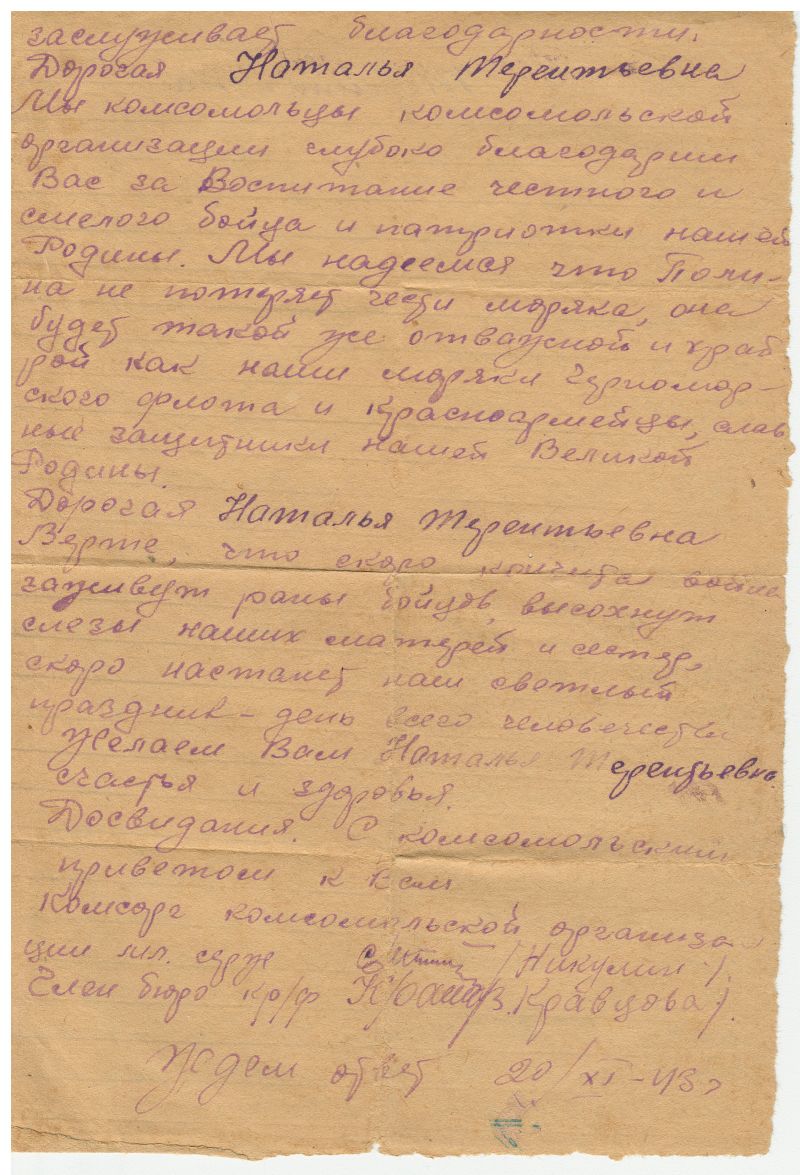 заслуживает благодарности.
Дорогая Наталья Терентьевна
Мы комсомольцы комсомольской
организации глубоко благодарим
Вас за Воспитание честного и
смелого бойца и патриотки нашей
Родины. Мы надеемся что Поли-
на не потеряет чести моряка, она
будет такой же отважной и храб
рой как наши моряки Черномор-
ского флота и Красноармейцы, слав
ные защитники нашей Великой
Родины.
Дорогая Наталья Терентьевна
Верте, что скоро кончится война
заживут раны бойцов, высохнут
слезы наших матерей и сестер,
скоро настанет наш светлый
праздник – день всего человечества
Желаем Вам Наталья Терентьевна
счастья и здоровья.
Досвидания. С комсомольским
приветом к Вам
Комсорг комсомольской организа
ции мл. серж /Никулин/.
Член бюро кр/ф /В. Кравцова/.
Ждем ответ 20/XI-43г